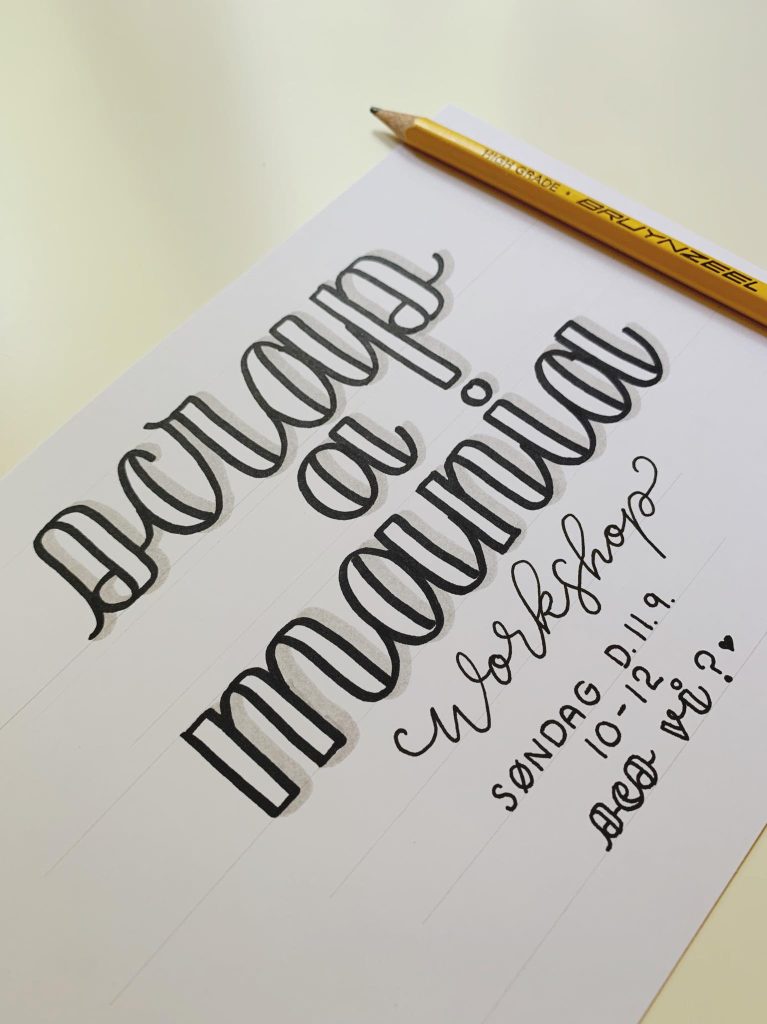 HIGH GRADE • BRUYNZEEL
scrap
a
mania
Workshop
SØNDAG D. 11.9.
10-12
ses vi?